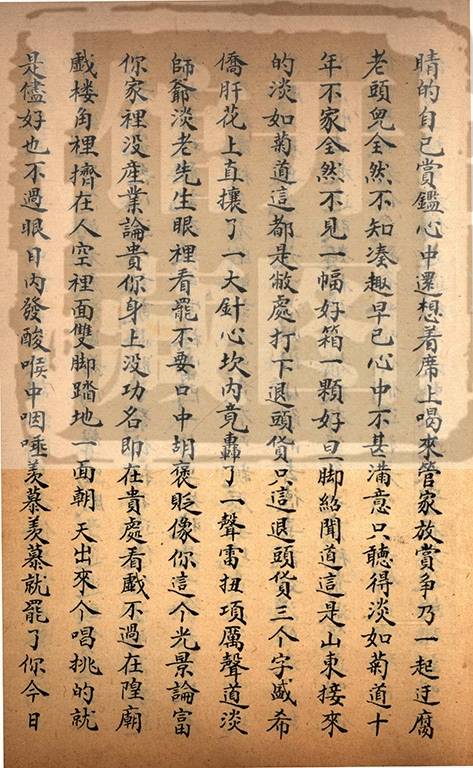 睛的自已賞鑑心中還想着席上喝來管家放賞争乃一起迂腐
老頭兒全然不知湊趣早已心中不甚滿意只聽得淡如菊道十
年不家全然不見一幅好箱一顆好旦脚紹聞道這是山東接來
的淡如菊道這都是敝處打下退頭貨只這退頭貨三个字盛希
僑肝花上直攮了一大針心坎内竟轟了一聲雷扭項厲聲道淡
師爺淡老先生眼裡看罷不要口中胡褒貶像你這个光景論富
你家裡没産業論貴你身上没功名即在貴處看戲不過在隍廟
戲楼角裡擠在人空裡面雙脚踏地一面朝天出來个唱挑的就
是儘好也不過眼日内發酸喉中咽唾羡慕羡慕就罷了你今日